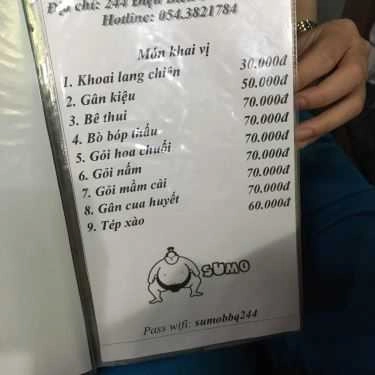 Địa chỉ: 244 Điện Biên
Hotline: 054.3821784
Món khai vị
1. Khoai lang chiên 30.000đ
2. Gân kiệu 50.000đ
3. Bê thui 70.000đ
4. Bò bóp thấu 70.000đ
5. Gỏi hoa chuối 70.000đ
6. Gỏi nấm 70.000đ
7. Gỏi mầm cải 70.000đ
8. Gân cua huyết 70.000đ
9. Tép xào 60.000đ
SUMO
Pass wifi: sumobbq244